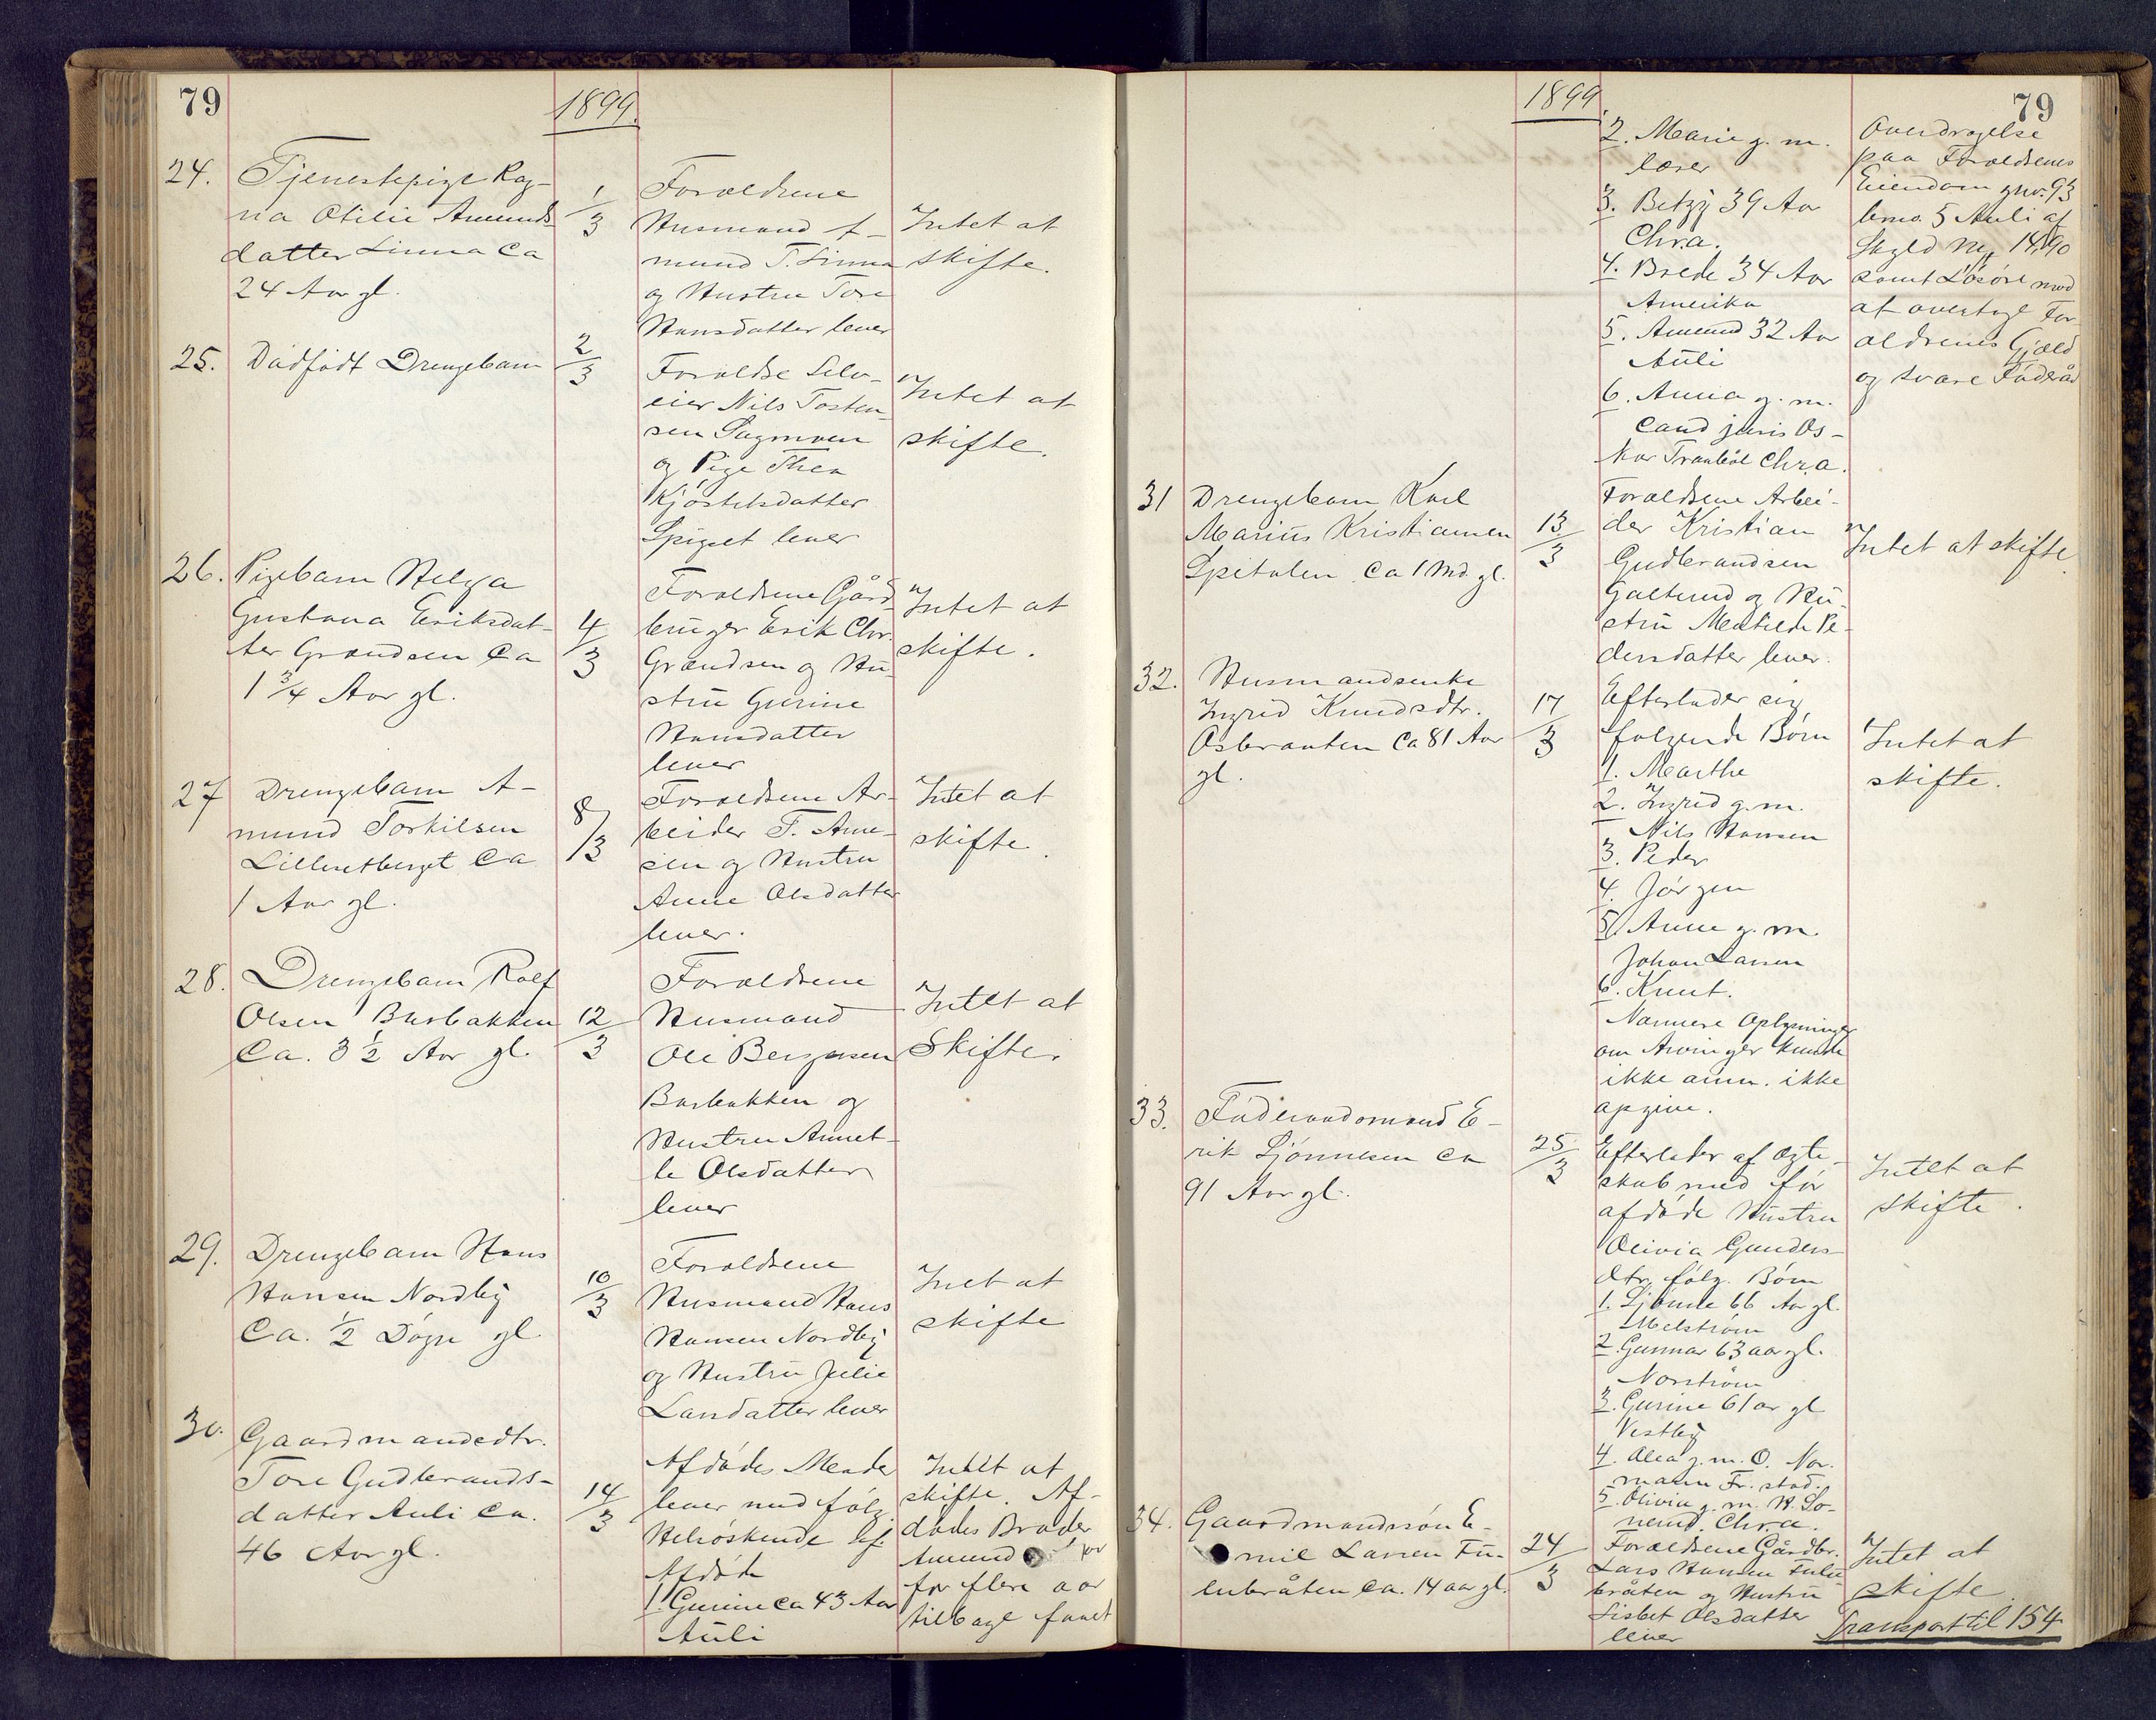 79
1899.
24.
Tjenestepige Rag-
na Otilie Amunds-
datter Linna Ca
24 Aar gl.
1/3
Forældrene
Husmand A-
mund T. Linna
og Hustru Tore
Hansdatter lever
Intet at
skifte.
25.
Dødfødt Drengebarn
2/3
Forældre Selv-
eier Nils Tosten-
sen Sagmoen
og Pige Thea
Kjøstelsdatter
Spigset lever
Intet at
skifte.
26.
Pigebarn Helga
Gustava Eriksdat-
ter Grændsen Ca
1 3/4 Aar gl.
4/3
Forældrene Gård-
bruger Erik Chr.
Grændsen og Hu-
stru Gurine
Hansdatter
lever
Intet at
skifte.
27
Drengebarn A-
mund Torkilsen
Lillesetberget Ca
1 Aar gl.
8/3
Forældrene Ar-
beider T. Arne-
sen og Hustru
Anne Olsdatter
lever.
Intet at
skifte.
28.
Drengebarn Rolf
Olsen Busbakken
Ca. 3 1/2 Aar gl.
12/3
Forældrene
Husmand
Ole Bergersen
Busbakken og
Hustru Annet-
te Olsdatter
lever
Intet at
Skifte.
29.
Drengebarn Hans
Hansen Nordby
Ca. 1/2 Døgn gl
10/3
Forældrene
Husmand Hans
Hansen Nordby
og Hustru Julie
Larsdatter lever
Intet at
skifte
30.
Gaardmandsdtr.
Tore Gudbrands-
datter Auli Ca.
46 Aar gl.
14/3
Afdødes Moder
lever med følg.
Helsøskende af
Afdøde
1. Gurine Ca 43 Aar
Auli
Intet at
skifte. Af-
dødes Broder
Amund har
for flere aar
tilbage faaet
79
1899.
2. Marie g. m.
3. Betzy 39 Aar
Chr.a.
4. Brede 34 Aar
Amerika
5. Amund 32 Aar
Auli
6. Anna g. m.
Cand juris Os-
kar Tranbøl Chr.a.
Overdragelse
paa Forældrenes
Eiendom gno. 93
bno. 5 Auli af
Skyld Mk 14,90
samt Løsøre mod
at overtage For-
ældrenes Gjæld
og svare Føderåd
31
Drengebarn Karl
Marius Kristiansen
Spitalen Ca 1 Md. gl.
13/3
Forældrene Arbei-
der Kristian
Gudbrandsen
Galterud og Hu-
stru Mathilde Pe-
dersdatter lever.
Intet at skifte
32.
Husmandsenke
Ingrid Knudsdtr.
Asbraaten Ca 81 Aar
gl.
17/3
Efterlader sig
følgende Børn
1. Marthe
2. Ingrid g. m.
Nils Hansen
3. Peder
4. Jørgen
5. Anne g. m.
Johan Larsen
6. Knut.
Nærmere Oplysninger
om Arvinger kunde
ikke anm. ikke
opgive.
Intet at
skifte.
33.
Føderaadsmand E-
rik Sjønnesen Ca
91 Aar gl.
25/3
Efterlader af Ægte-
skab med før
afdøde Hustru
Olivia Gunders-
dtr. følg. Børn
1. Sjønne 66 Aar gl.
Melstrøm
2. Gunnar 63 aar gl.
Norstrøm
3. Gurine 61 ar gl
Vestby
4. Olea g. m. O. Nor-
mann Fr. stad.
5. Olivia g. m. H. So-
nerud. Chr.a.
Intet at
skifte.
34.
Gaardmandssøn E-
mil Larsen Fu-
lubråten Ca. 14 aar gl.
24/3
Forældrene Gårdbr.
Lars Hansen Fulu-
bråten og Hustru
Lisbet Olsdatter
lever
Intet at
skifte.
Transport til 154